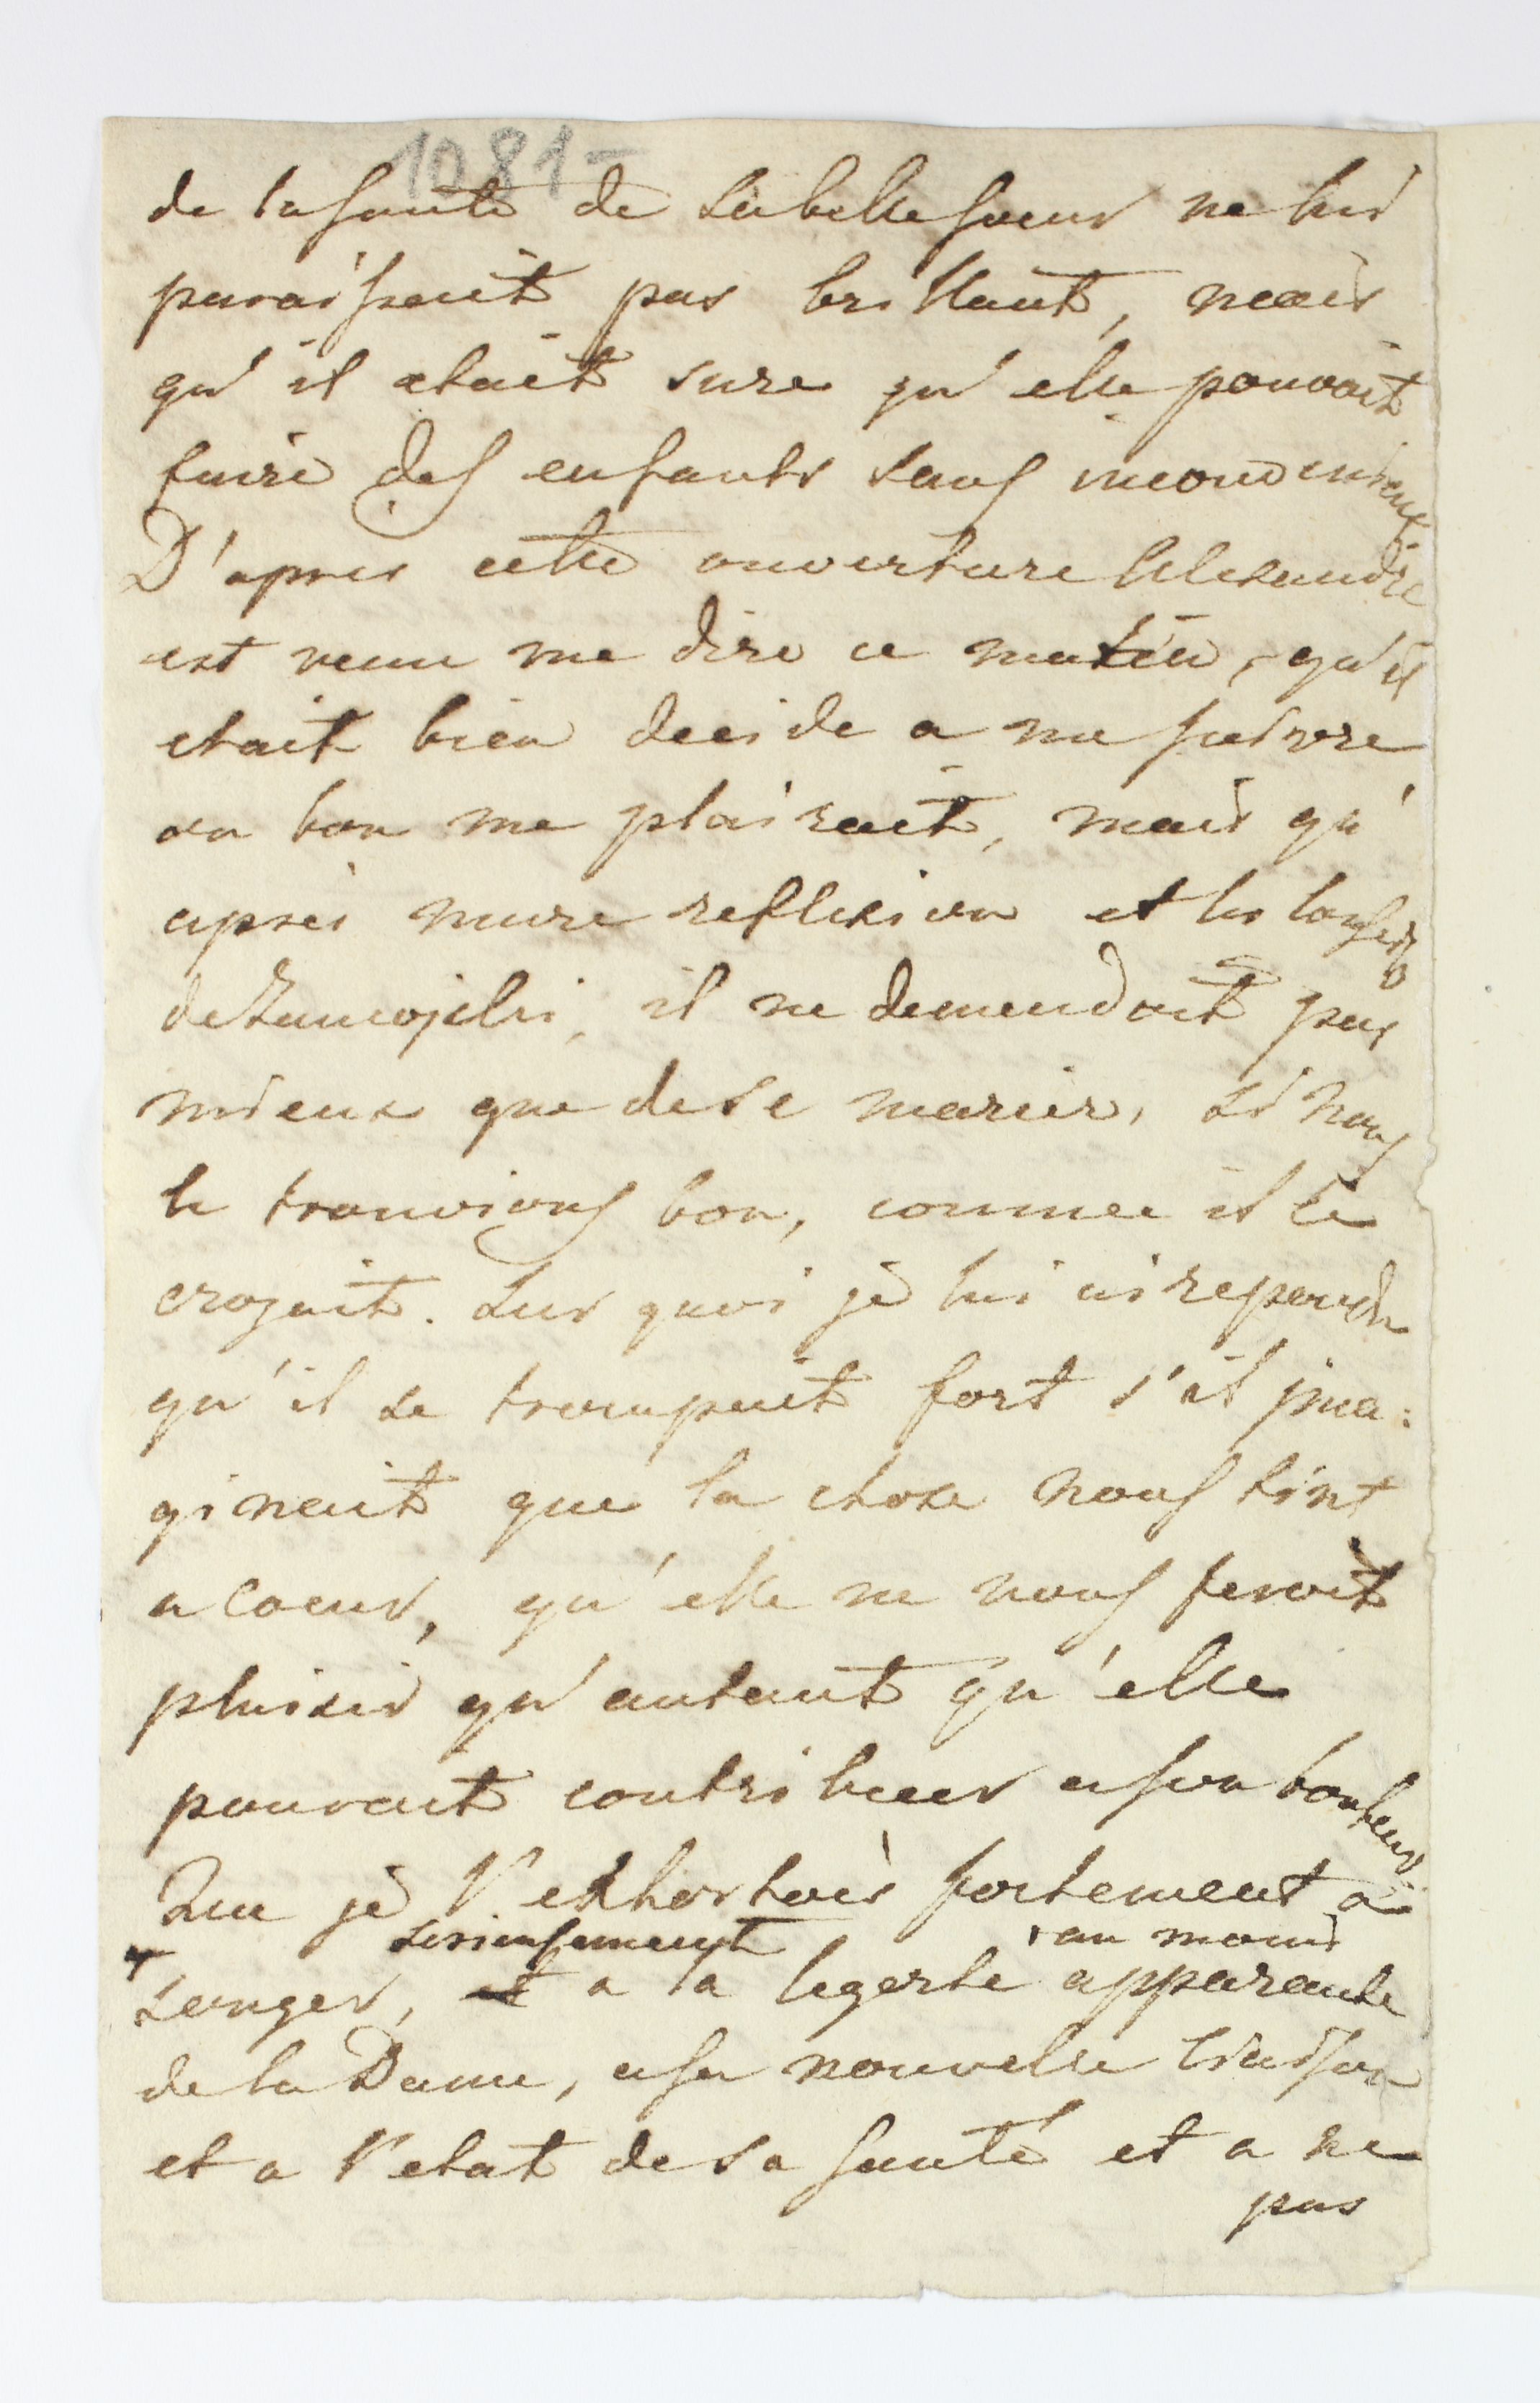 1081-
de la santé de sa belle soeur ne lui
paraissait pas brillant, mais
qu'il etait sure qu'elle pouvait
faire des enfants sans
D'apres cette ouverture Alexandre
est venu me dire ce matin, qu'il
etait bien decide a me suivre
ou bon me plairait, mais qu'
après mure reflexion et les
de il ne demandait pas
mieux que de se marier, si nous
le trouvions bon, comme il le
croyait. Sur quoi je lui ai repondu
qu'il se trompait fort s'il ima:
ginait que la chose nous tint
a coeur, qu'elle ne nous feroit
plaisir qu'autant qu'elle
pourait contribuer a son bonheur
Que je l'exhortais fortement a
serieusement au moins
songer, a la legerte apparente
de la Dame, a sa nouvelle liaison
et a l'etat de sa santé et a ne
pas